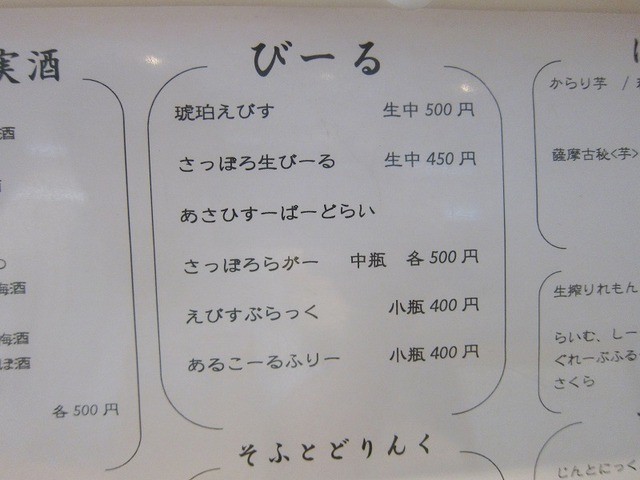 実酒
酒
梅酒
梅酒
ぽ酒
各500円
びーる
琥珀えびす 生中500円
さっぽろ生びーる 生中450円
あさひすーぱーどらい
さっぽろらがー 中瓶 各500円
えびすぶらっく 小瓶400円
あるこーるふりー 小瓶400円
そふとどりんく
からり芋 /
薩摩古秘<芋>
生搾りれもん
らいむ、しー
ぐれーぷふる
さくら
じんとにっく